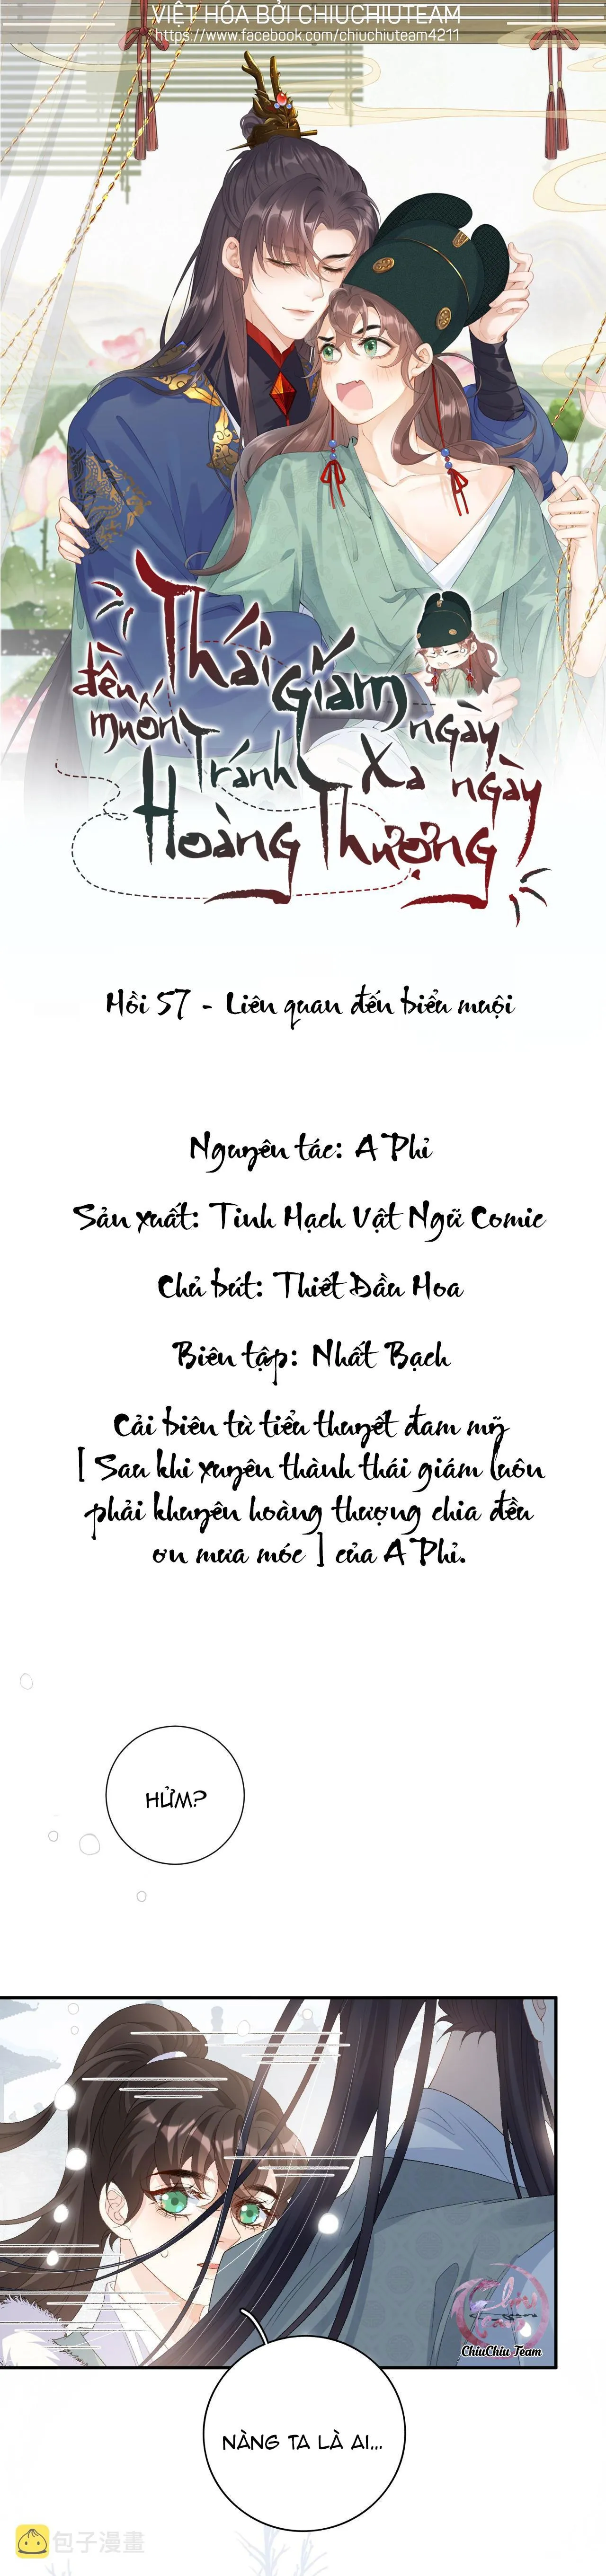 VIỆT HÓA BỞI CHIUCHIUTEAM
https://www.facebook.com/chiuchiuteam4211
Thái Giám ngày
đều muốn Tránh Xa ngày
Hoàng Thượng
Hồi 57 - Liên quan đến biểu muội
Nguyên tác: A Phỉ
Sản xuất: Tinh Hạch Vật Ngữ Comic
Chủ bút: Thiết Đầu Hoa
Biên tập: Nhất Bạch
Cải biên từ tiểu thuyết đam mỹ
[ Sau khi xuyên thành thái giám luôn
phải khuyên hoàng thượng chia đều
ơn mưa móc ] của A Phỉ.
HỬM?
ChiuChiu Team
NÀNG TA LÀ AI...
包子漫畫